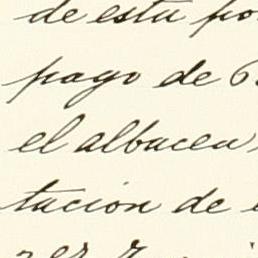 de esta po
pago de 6
el albacea
tación de